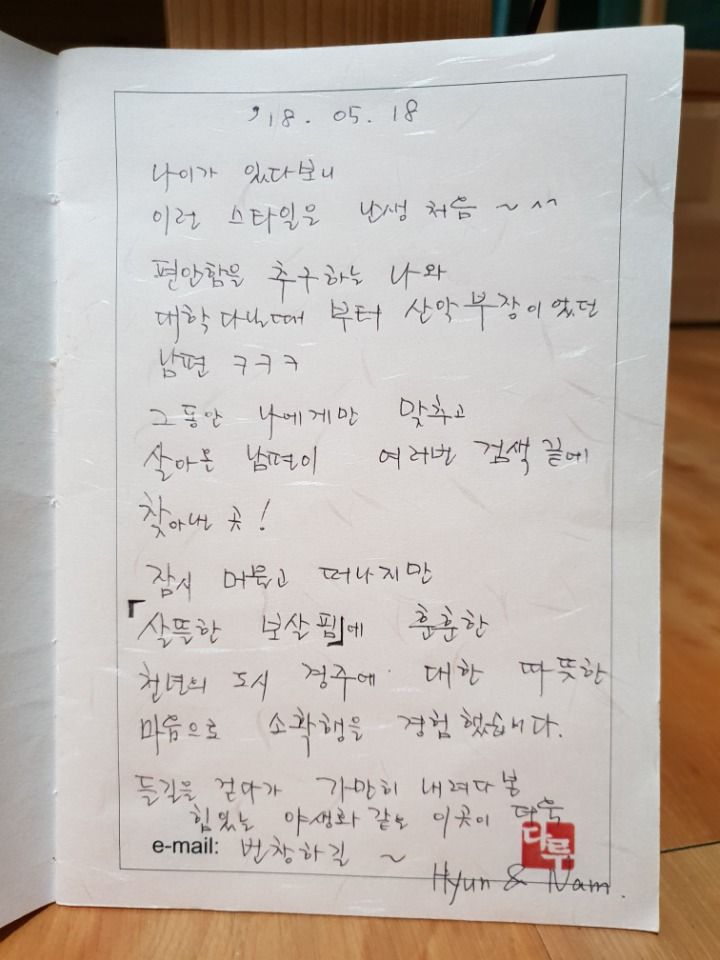 '18. 05. 18
나이가 있다보니
이런 스타일은 난생 처음 ~ ^^
편안함을 추구하는 나와
대학 다닐때 부터 산악부장이었던
남편 ㅋㅋㅋ
그동안 나에게만 맞추고
살아온 남편이 여러번 검색 끝에
찾아낸 곳!
잠시 머물고 떠나지만
「살뜰한 보살핌」에 훈훈한
천년의 도시 경주에 대한 따뜻한
마음으로 소확행을 경험 했습니다.
들길을 걷다가 가만히 내려다 봄
힘있는 야생화 같은 이곳이 더욱
e-mail: 번창하길 ~
다루
Hyun & Nam.